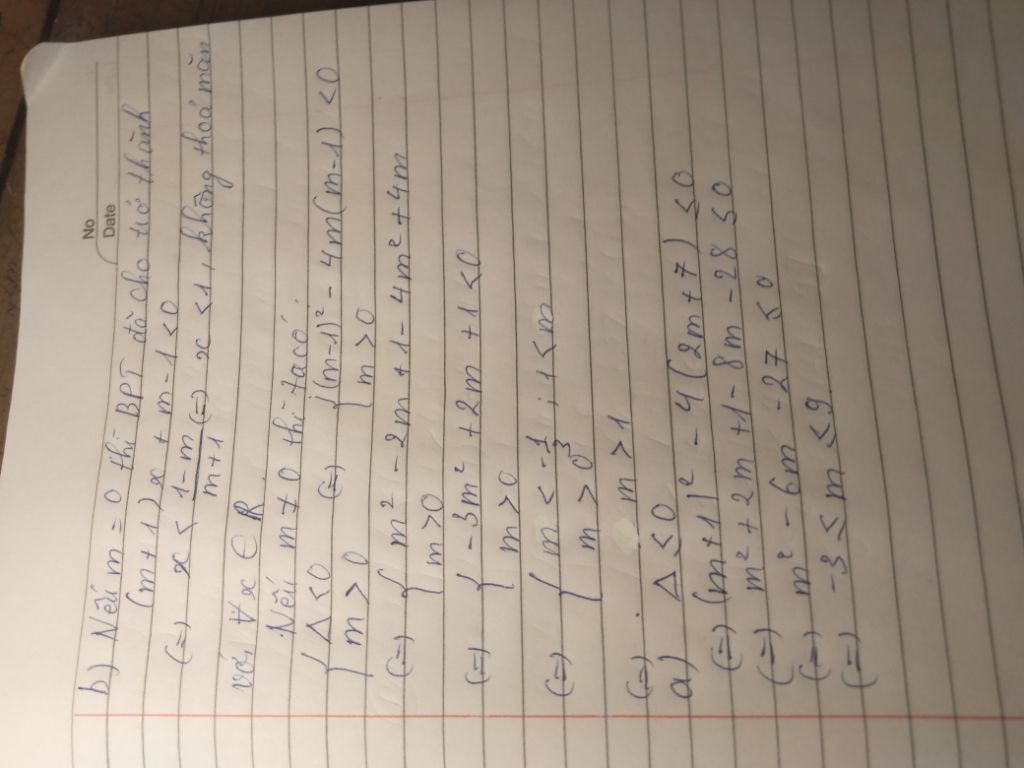 No
Date
b) Nếu m = 0 thì BPT đã cho trở thành
(m+1)x + m-1 < 0
(=) x < \frac{1-m}{m+1} (=) x < 1, không thoả mãn
với ∀x ∈ R
Nếu m ≠ 0 thì ta có
{ Δ < 0 ; m > 0 (=) { (m-1)² - 4m(m-1) < 0 ; m > 0
(=) { m² - 2m + 1 - 4m² + 4m ; m > 0
(=) { -3m² + 2m + 1 < 0 ; m > 0
(=) { m < -\frac{1}{3} ; 1 < m ; m > 0
(=) m > 1
a) Δ ≤ 0
(=) (m+1)² - 4(2m+7) ≤ 0
(=) m² + 2m + 1 - 8m - 28 ≤ 0
(=) m² - 6m - 27 ≤ 0
(=) -3 ≤ m ≤ 9